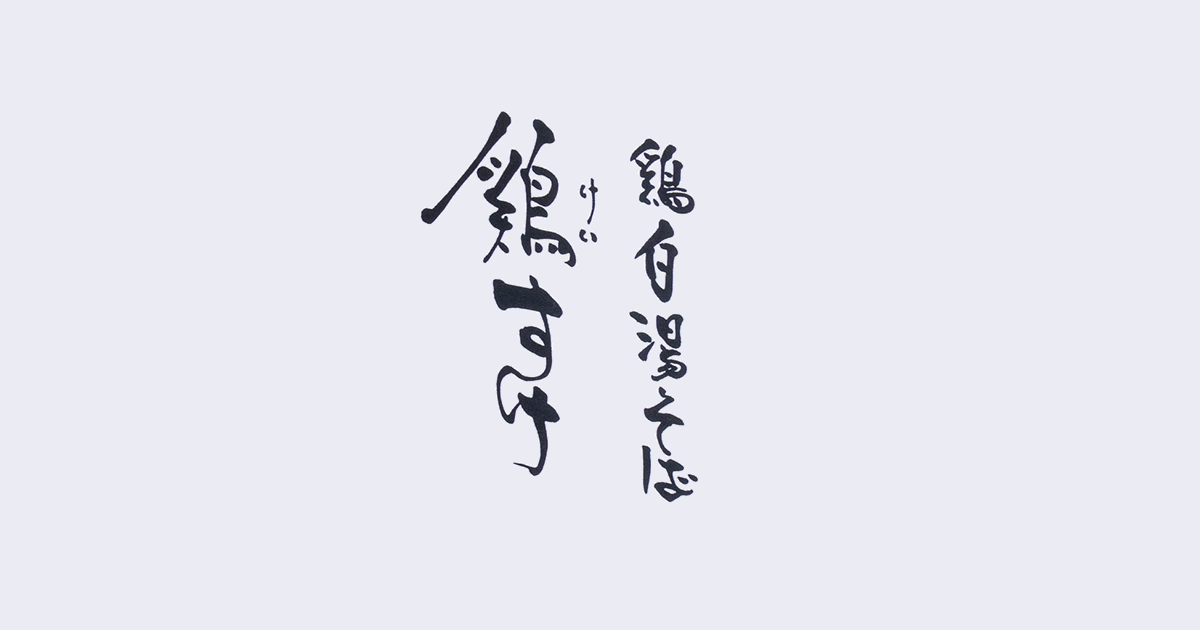 鶏白湯そば
鶏すけ
けい